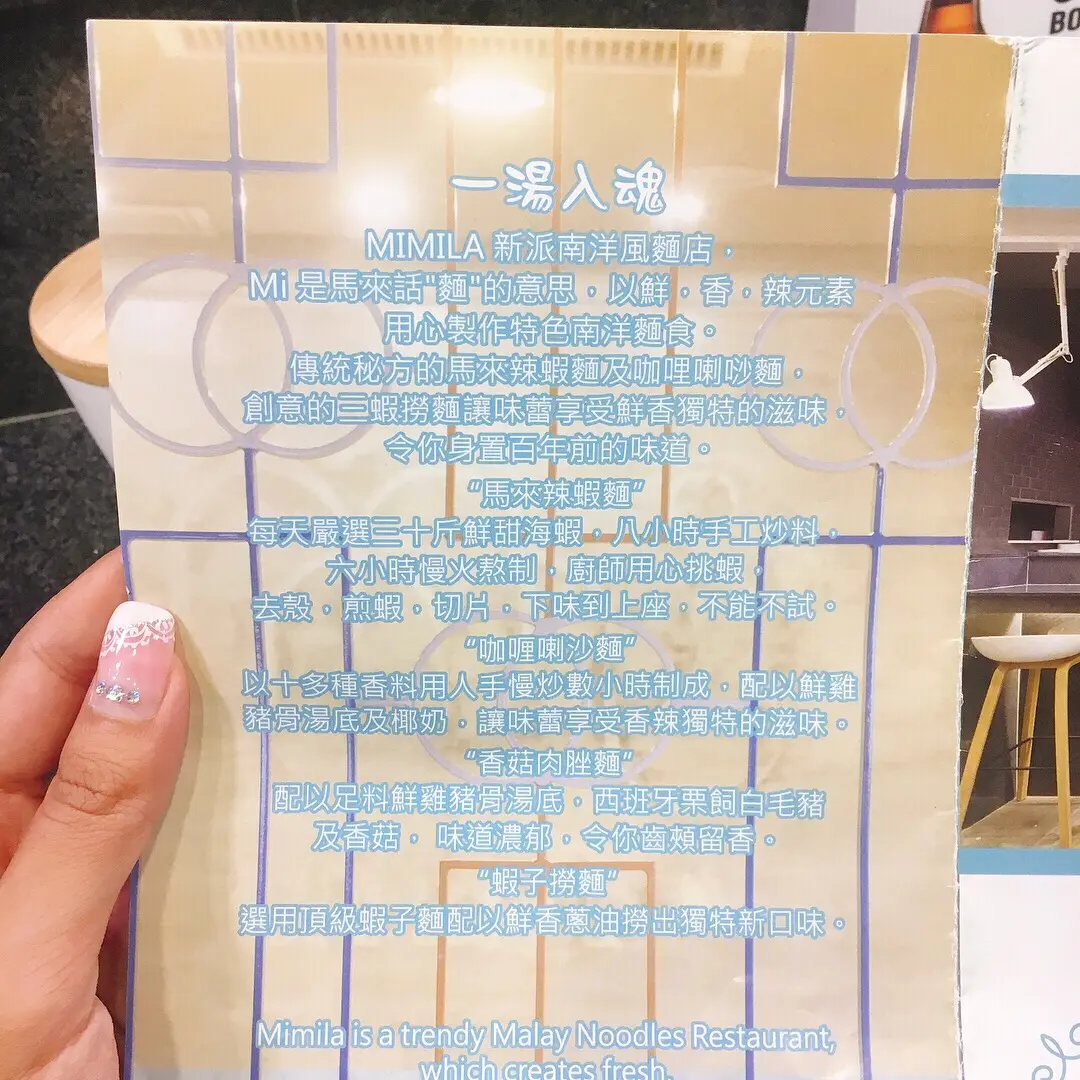 BO
一湯入魂
MIMILA 新派南洋風麵店，
Mi 是馬來話"麵"的意思，以鮮，香，辣元素
用心製作特色南洋麵食。
傳統秘方的馬來辣蝦麵及咖哩喇吵麵，
創意的三蝦撈麵讓味蕾享受鮮香獨特的滋味，
令你身置百年前的味道。
“馬來辣蝦麵”
每天嚴選三十斤鮮甜海蝦，八小時手工炒料，
六小時慢火熬制，廚師用心挑蝦，
去殼，煎蝦，切片，下味到上座，不能不試。
“咖喱喇沙麵”
以十多種香料用人手慢炒數小時制成，配以鮮雞
豬骨湯底及椰奶，讓味蕾享受香辣獨特的滋味。
“香菇肉脞麵”
配以足料鮮雞豬骨湯底，西班牙栗飼白毛豬
及香菇， 味道濃郁，令你齒頰留香。
“蝦子撈麵”
選用頂級蝦子麵配以鮮香蔥油撈出獨特新口味。
Mimila is a trendy Malay Noodles Restaurant,
which creates fresh,